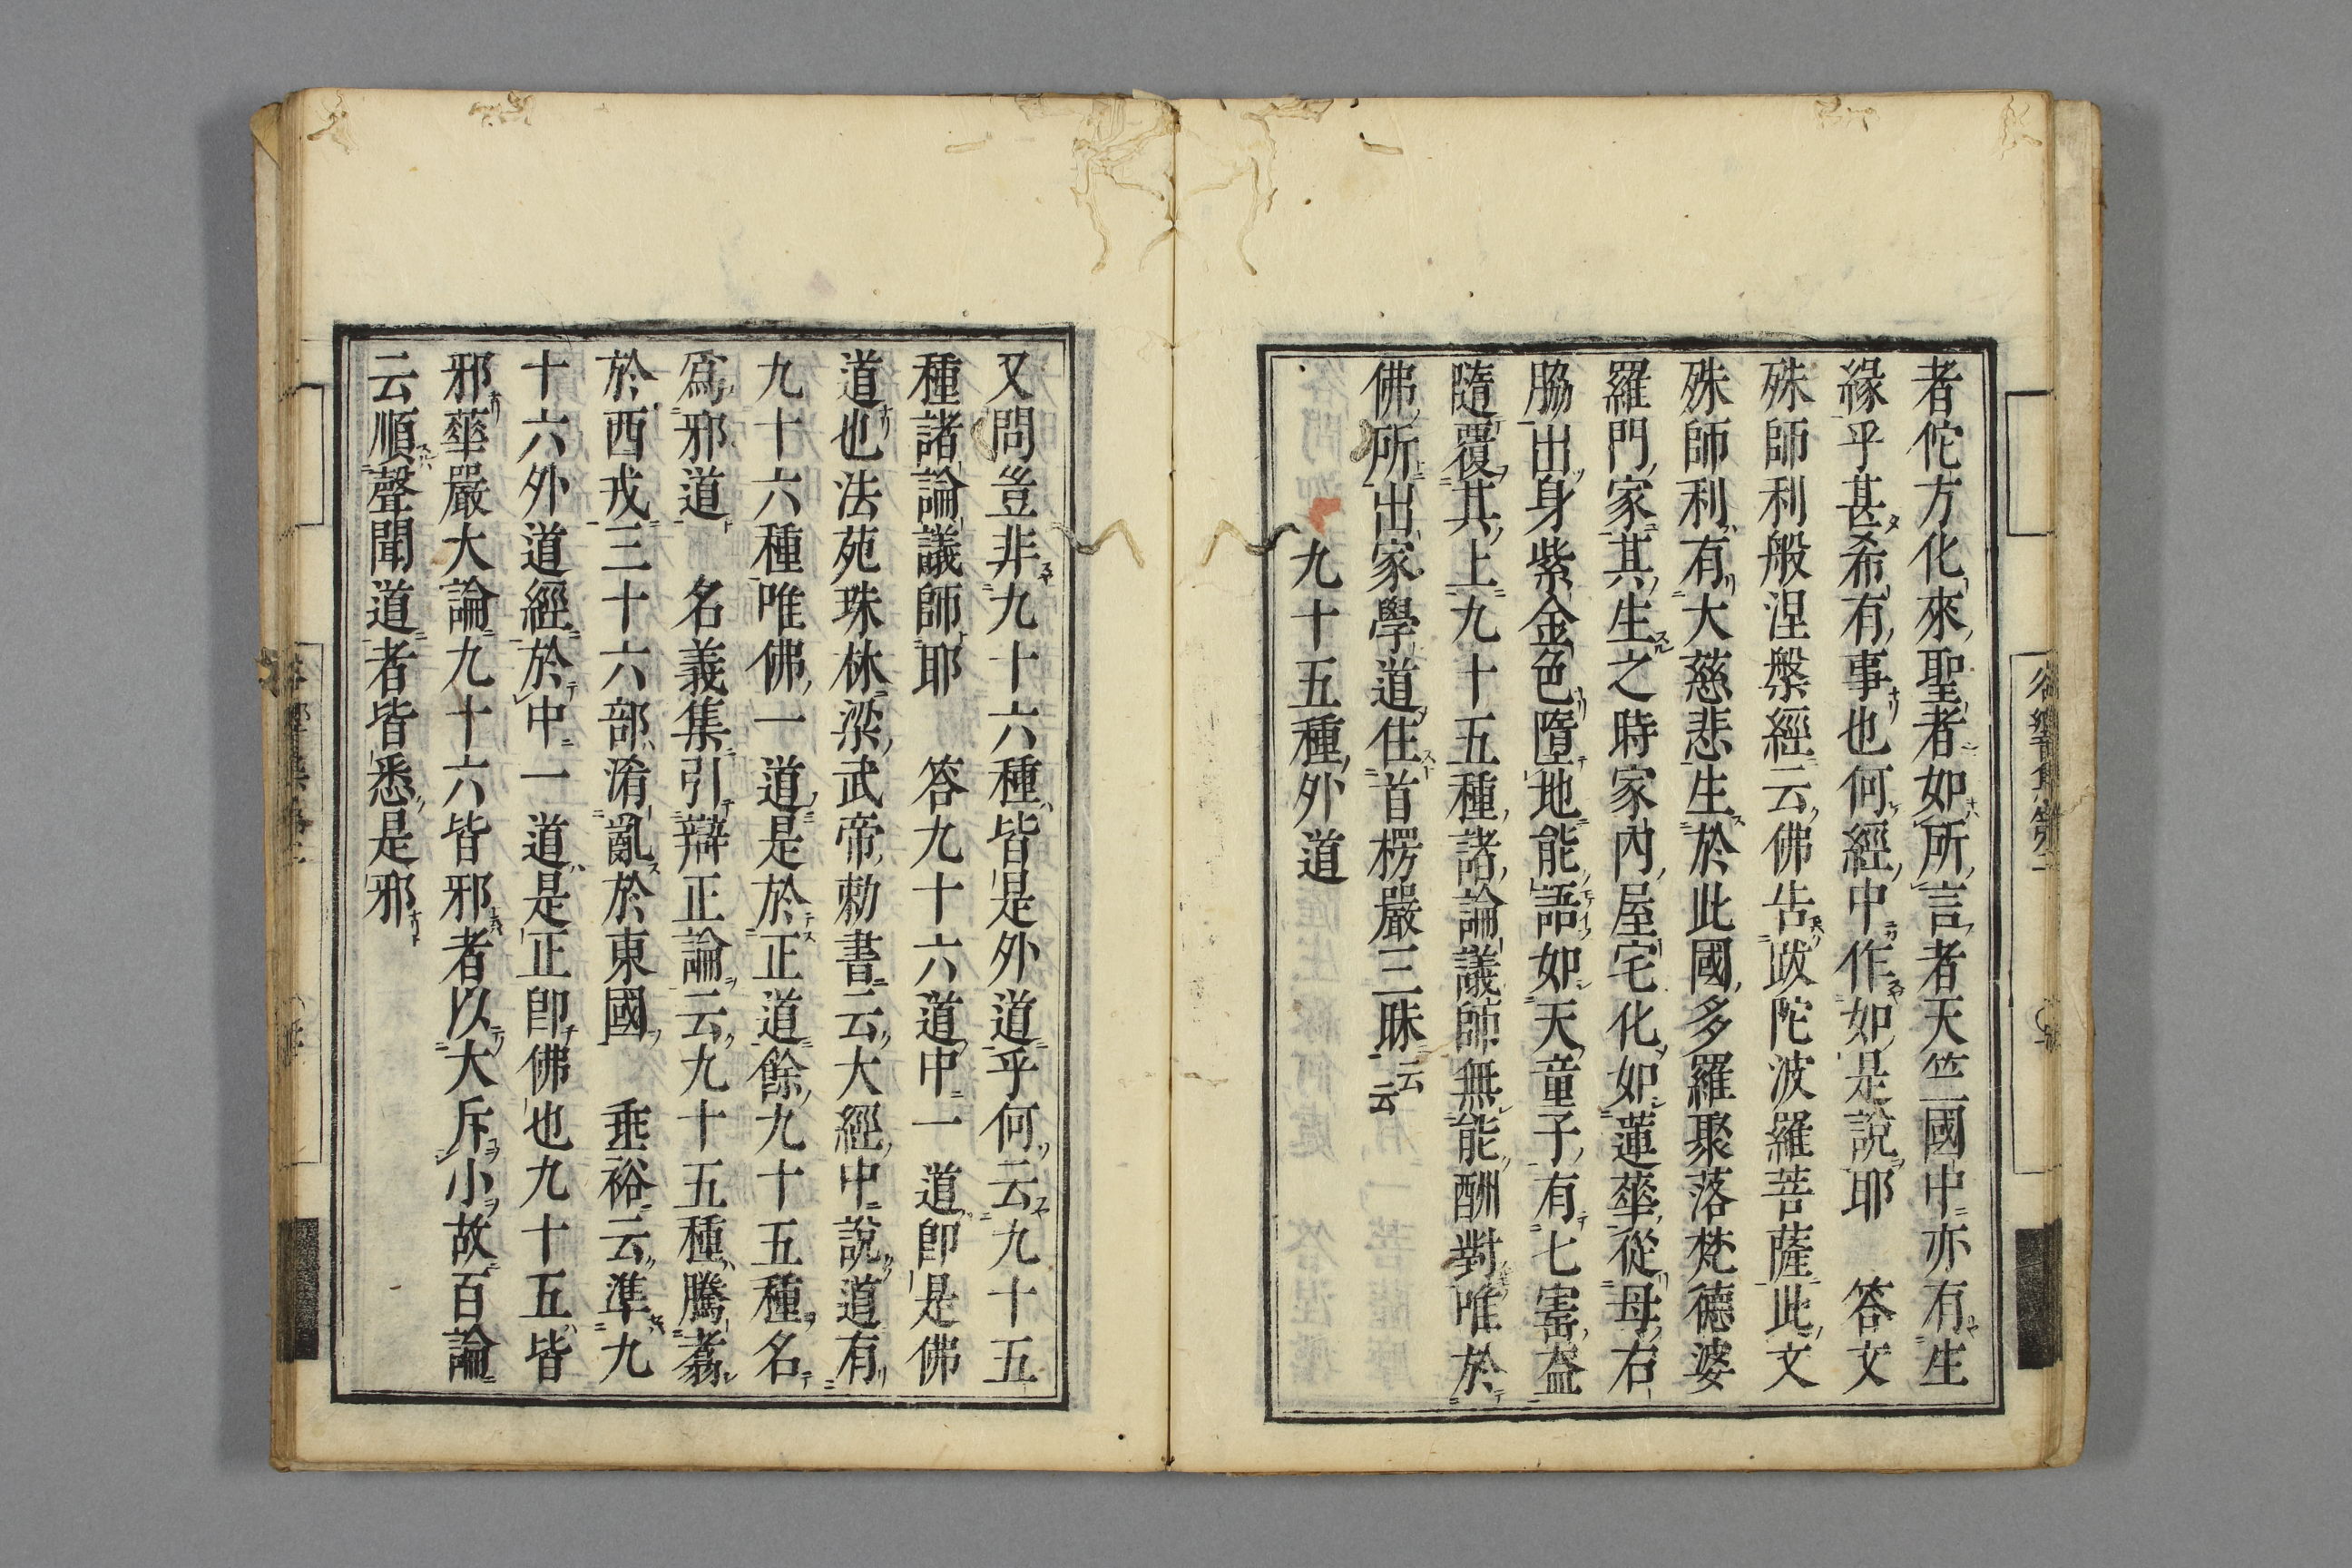 者佗方化來聖者如所言者天竺國中亦有生
緣乎甚希有事也何經中作如是說耶　答文
殊師利般涅槃經云佛告跋陀波羅菩薩此文
殊師利有大慈悲生於此國多羅聚落梵德婆
羅門家其生之時家內屋宅化如蓮華從母右
脇出身紫金色墮地能語如天童子有七寶蓋
隨覆其上九十五種諸論議師無能酬對唯於
佛所出家學道住首楞嚴三昧云云
九十五種外道
又問豈非九十六種皆是外道乎何云九十五
種諸論議師耶　答九十六道中一道即是佛
道也法苑珠林梁武帝勅書云大經中說道有
九十六種唯佛一道是於正道餘九十五種名
爲邪道　名義集引辯正論云九十五種騰翥
於西戎三十六部淆亂於東國　垂裕云準九
十六外道經於中一道是正即佛也九十五皆
邪華嚴大論九十六皆邪者以大斥小故百論
云順聲聞道者皆悉是邪